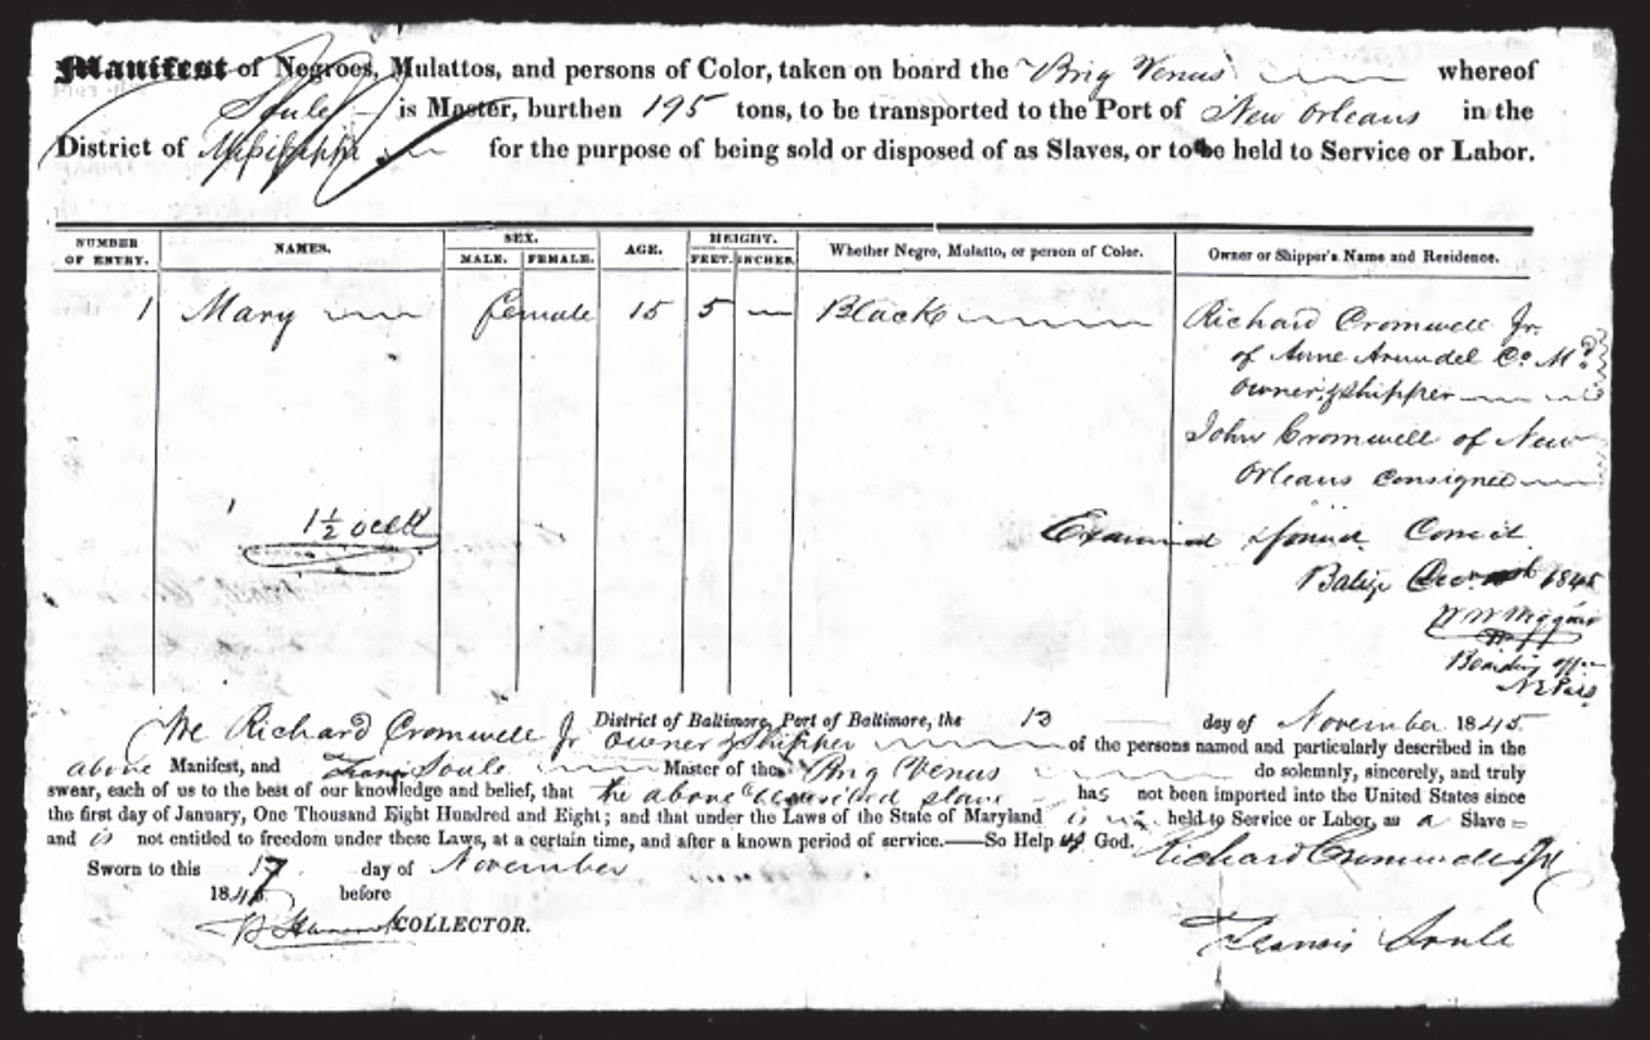 Manifest of Negroes, Mulattos, and persons of Color, taken on board the Brig Venus whereof
Soule is Master, burthen 195 tons, to be transported to the Port of New Orleans in the
District of Mississippi for the purpose of being sold or disposed of as Slaves, or to be held to Service or Labor.
NUMBER OF ENTRY. NAMES. SEX. MALE. FEMALE. AGE. HEIGHT. FEET. INCHES. Whether Negro, Mulatto, or person of Color. Owner or Shipper's Name and Residence.
1 Mary female 15 5 Black Richard Cromwell Jr.
of Anne Arundel Co. Md
owner & shipper
John Cromwell of New
Orleans consignee
1½
Examined & found Correct
Balize 1845
Boarding
We Richard Cromwell Jr District of Baltimore, Port of Baltimore, the 13 day of November 1845
owner & Shipper of the persons named and particularly described in the
above Manifest, and Francis Soule Master of the Brig Venus do solemnly, sincerely, and truly
swear, each of us to the best of our knowledge and belief, that the above described slave has not been imported into the United States since
the first day of January, One Thousand Eight Hundred and Eight; and that under the Laws of the State of Maryland is held to Service or Labor, as a Slave
and is not entitled to freedom under these Laws, at a certain time, and after a known period of service.——So Help us God.
Richard Cromwell Jr
Sworn to this 17 day of November
1845 before
COLLECTOR.
Francis Soule